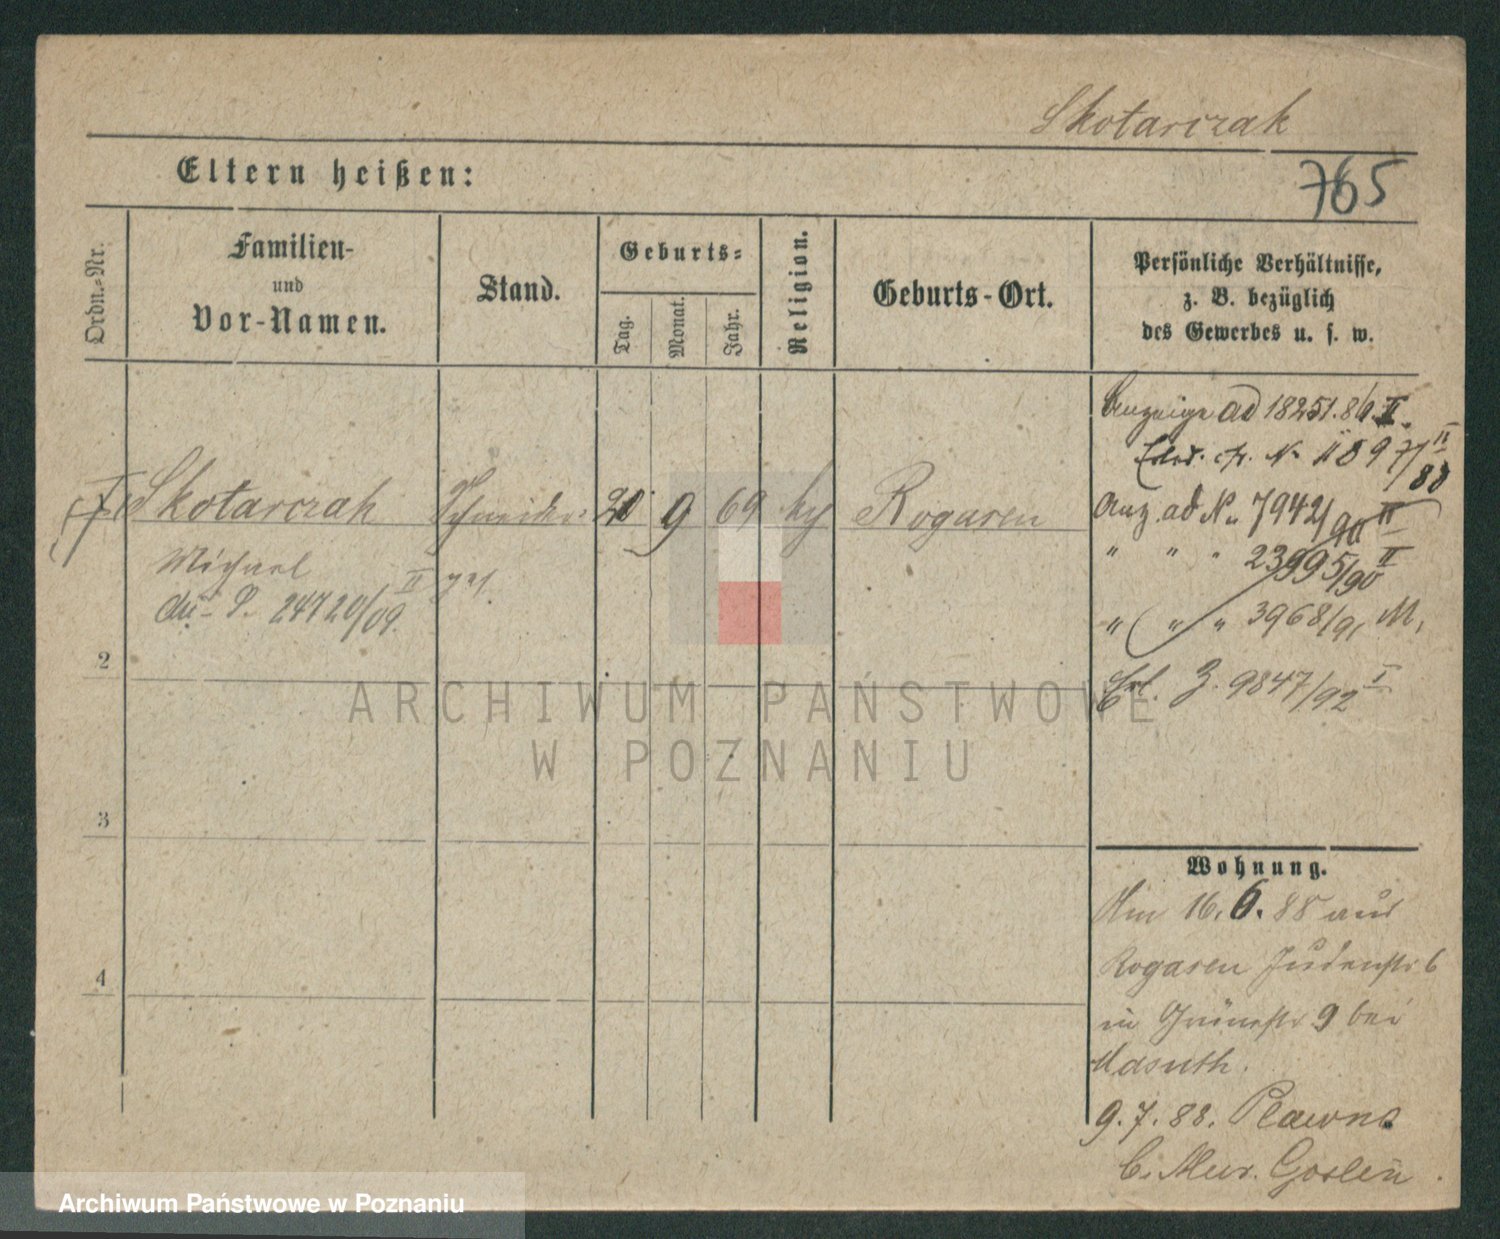 Skotarczak
765
Eltern heißen:
Ordn.-Nr.
Familien-
und
Vor-Namen.
Stand.
Geburts-
Tag.
Monat.
Jahr.
Religion.
Geburts-Ort.
Persönliche Verhältnisse,
z. B. bezüglich
des Gewerbes u. s. w.
Skotarczak
Michael
24720/09 II
Schneider
ges.
9
69
Rogasen
Anzeige ad 18251.86.II.
Anz. ad N. 7942/90 II
" " " 23995/90 II
" " " 3968/91 M.
Erl. Z. 9847/92 I
2
3
4
Wohnung.
Am 16.6.88 aus
Rogasen Judenstr 6
in Grünestr 9 bei
Masuth.
9.7.88. Plawno
b. Mur. Goslin
ARCHIWUM PAŃSTWOWE
W POZNANIU
Archiwum Państwowe w Poznaniu